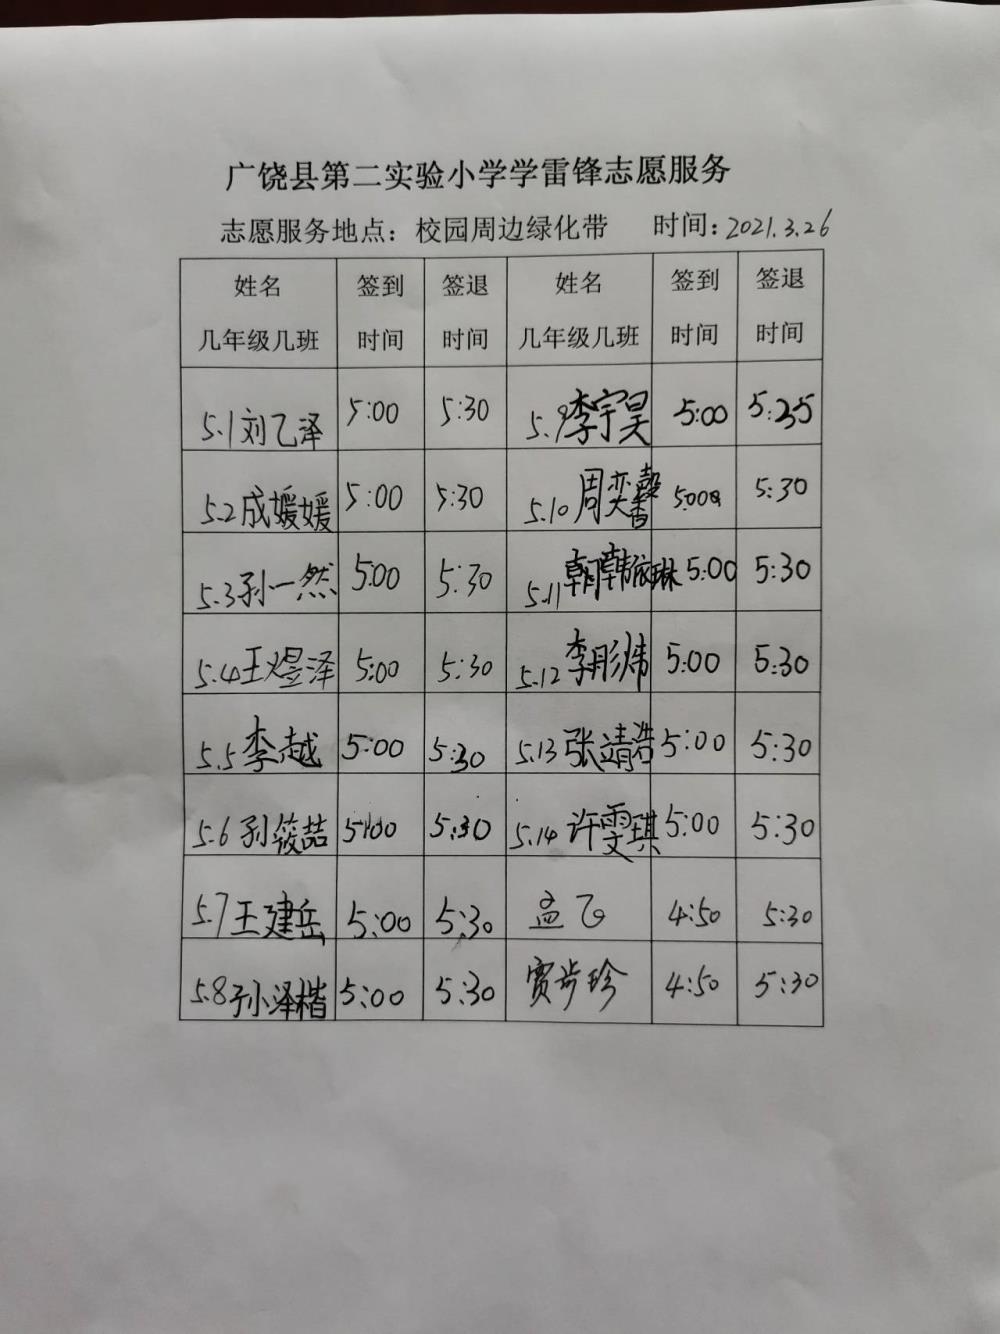 广饶县第二实验小学学雷锋志愿服务
志愿服务地点：校园周边绿化带 时间：2021.3.26
姓名 签到 签退 姓名 签到 签退
几年级几班 时间 时间 几年级几班 时间 时间
5.1刘乙泽 5:00 5:30 5.9李宇昊 5:00 5:25
5.2成媛媛 5:00 5:30 5.10周奕馨 5:00 5:30
5.3孙一然 5:00 5:30 5.11韩依琳 5:00 5:30
5.4王煜泽 5:00 5:30 5.12李彤炜 5:00 5:30
5.5李越 5:00 5:30 5.13张靖浩 5:00 5:30
5.6孙筱喆 5:00 5:30 5.14许雯琪 5:00 5:30
5.7王建岳 5:00 5:30 孟飞 4:50 5:30
5.8孙泽楷 5:00 5:30 贾步珍 4:50 5:30